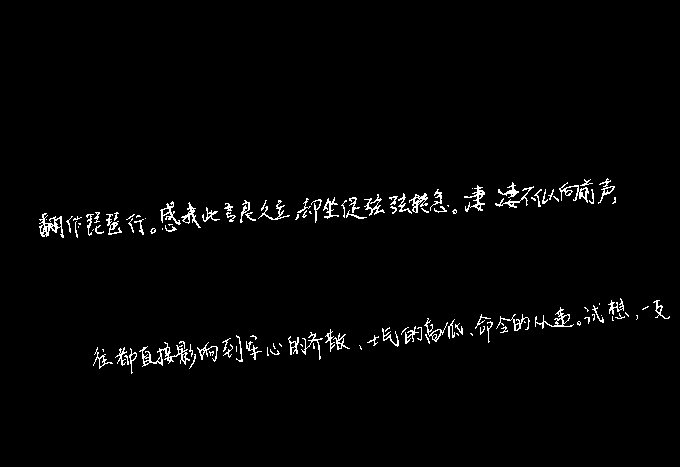 翻作琵琶行。感我此言良久立,却坐促弦弦转急。凄凄不似向前声,
往都直接影响到军心的齐散、士气的高低、命令的从违。试想,一支